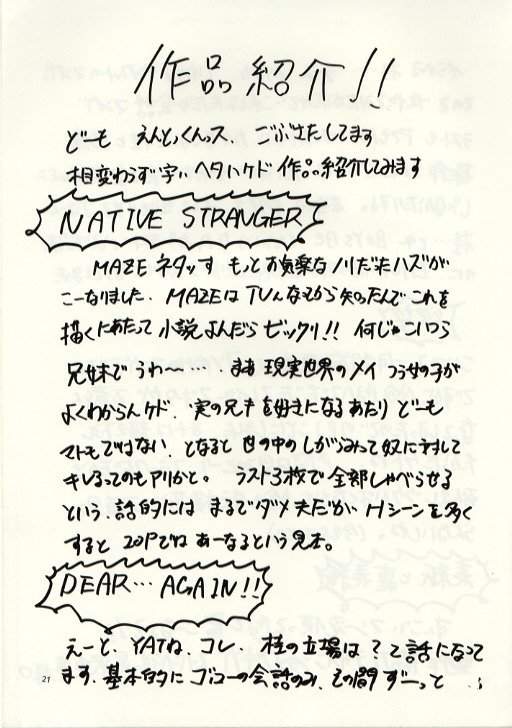 作品紹介!!
どーも えんとっくんっス、ごぶさたしてます
相変わらず字ハヘタハケド作品紹介してみます
NATIVE STRANGER
MAZEネタっす もっとお気楽なノリだったハズが
こーなりました、MAZEはTVんなてから知ったんでこれを
描くにあたって小説よんだらビックリ!! 何じゃこいつら
兄妹でうわ〜…、まあ現実世界のメイっつう女の子が
よくわからんケド、実の兄キを好きになるあたり どーも
マトモでではない、となると世の中のしがらみって奴に対して
キレるってのもアリかと。 ラスト3枚で全部しゃべらせる
という、話的には まるでダメ夫だが Hシーンを多く
すると 20Pでは あーなるという見本。
DEAR… AGAIN!!
えーと、YATね、コレ、桂の立場は?て話になって
ます、基本的にゴローの会話のみ、その間ずーっと
21